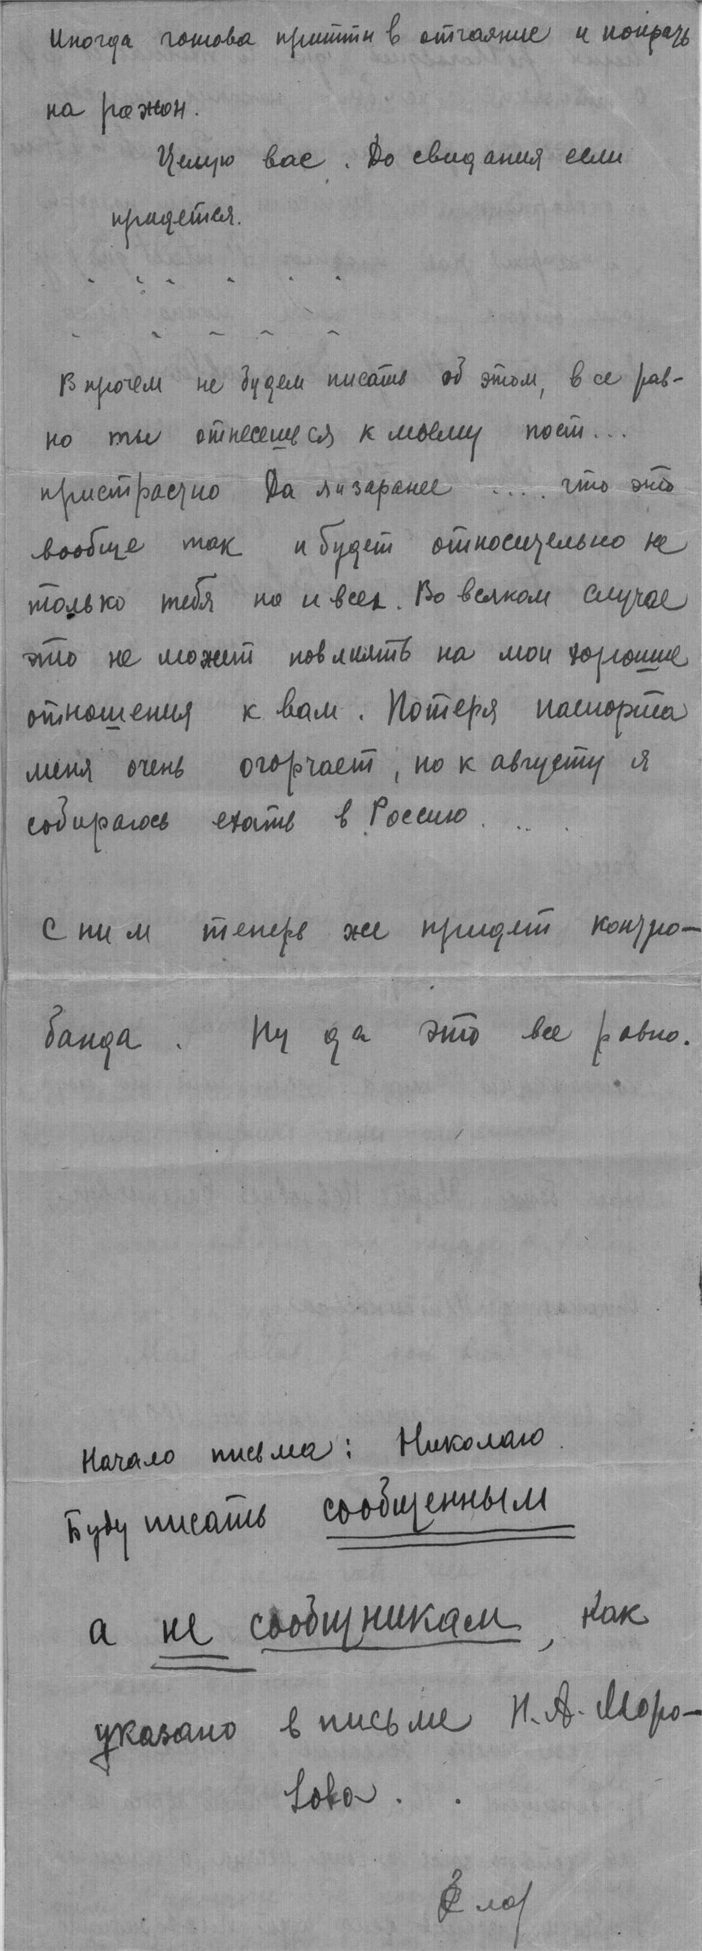 Иногда готова притти в отчаяние и попрать
на рожон.
Целую вас. До свидания если
придется.
Впрочем не будем писать об этом, все рав-
но ты отнесешься к моему пост...
пристрастно Да я и заранее .... что это
вообще так и будет относительно не
только тебя но и всех. Во всяком случае
это не может повлиять на мои хорошие
отношения к вам. Потеря паспорта
меня очень огорчает, но к августу я
собираюсь ехать в Россию. ..
С ним теперь же придет контро-
банда. Ну да это все равно.
Начало письма: Николаю.
Буду писать сообщенным
а не сообщникам, как
указано в письме Н. А. Моро-
зова. .